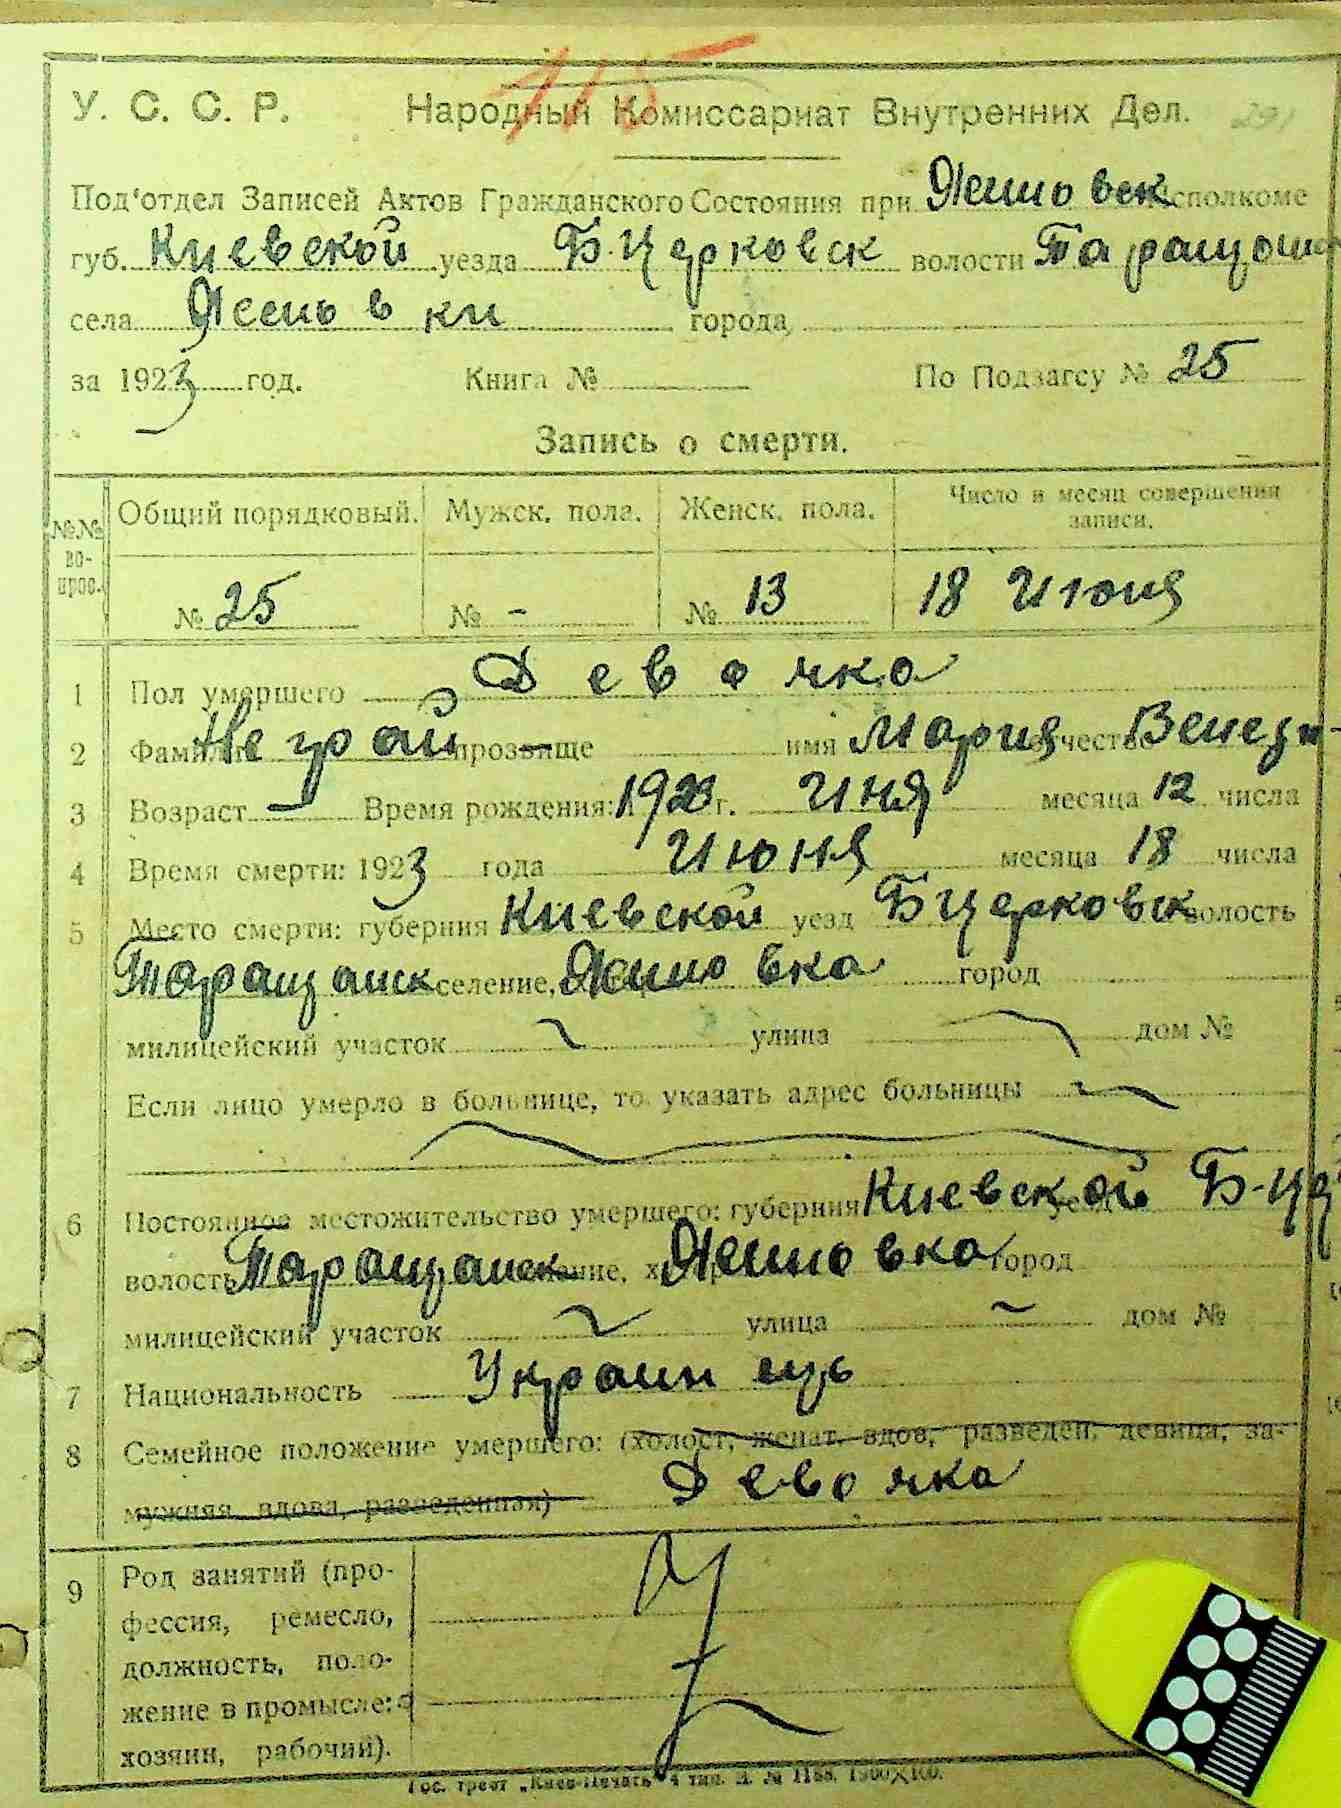 115
У. С. С. Р. Народный Комиссариат Внутренних Дел. 291
Под'отдел Записей Актов Гражданского Состояния при сполкоме
губ. Киевской уезда Б. Церковск волости
села города
за 1923 год. Книга № По Подзагсу № 25
Запись о смерти.
№№ вопрос. Общий порядковый. Мужск. пола. Женск. пола. Число и месяц совершения записи.
№ 25 № - № 13 18 Июня
1 Пол умершего Девочка
2 прозвище имя Мария
3 Возраст — Время рождения: 1923 г. Иня месяца 12 числа
4 Время смерти: 1923 года Июня месяца 18 числа
5 Место смерти: губерния Киевской уезд Б Церковск волость
Таращанск селение, город
милицейский участок улица дом №
Если лицо умерло в больнице, то указать адрес больницы
6 Постоянное местожительство умершего: губерния Киевской
волость Таращанск город
милицейский участок улица дом №
7 Национальность Украинець
8 Семейное положение умершего: (холост, женат, вдов, разведен, девица, за-
мужняя, вдова, разведенная) Девочка
9 Род занятий (про-
фессия, ремесло,
должность, поло-
жение в промысле:
хозяин, рабочий).
Гос. трест „Киев-Печать" 4 тип. № 1188. 1900×100.